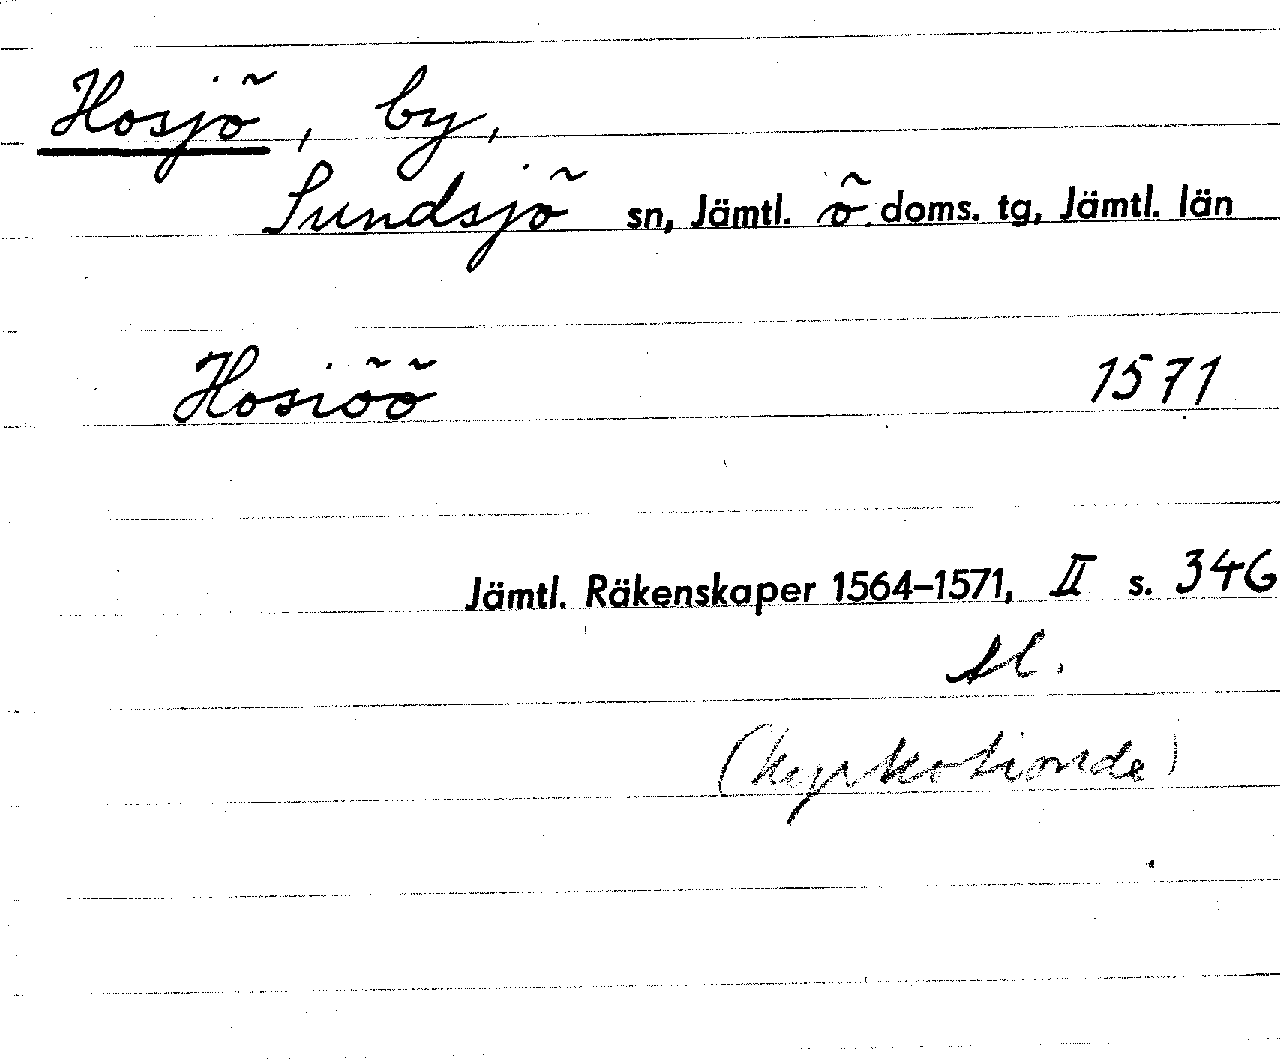 Hosjö, by,
Sundsjö sn, Jämtl. ö. doms. tg, Jämtl. län
Hosiöö 1571
Jämtl. Räkenskaper 1564–1571, II s. 346
(kyrkotionde)